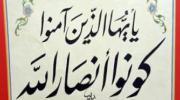 يا أيها الذين آمنوا
كونوا أنصار الله